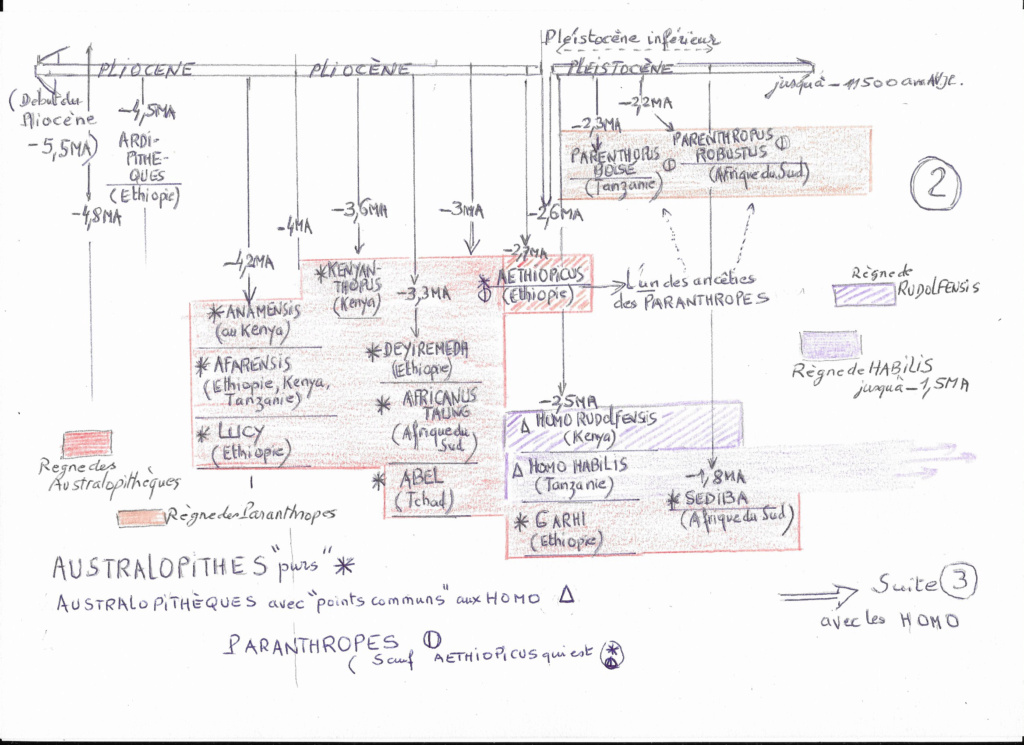 Pléistocène inférieur
PLIOCENE
PLIOCÈNE
PLÉISTOCÈNE
jusqu'à -11500 ans AVJC.
(Début du
Pliocène
-5,5MA)
-4,8MA
-4,5MA
ARDI-
PITHÉ-
QUES
(Ethiopie)
-4MA
-3,6MA
-3MA
-2,6MA
-2,3MA
PARENTHOPUS
BOISE
(Tanzanie)
-2,2MA
PARENTHROPUS
ROBUSTUS
(Afrique du Sud)
2
-4,2MA
*ANAMENSIS
(au Kenya)
*AFARENSIS
(Ethiopie, Kenya,
Tanzanie)
*LUCY
(Ethiopie)
*KENYAN-
THOPUS
(Kenya)
-3,3MA
*DEYIREMEDA
(Ethiopie)
*AFRICANUS
TAUNG
(Afrique du
Sud)
*ABEL
(Tchad)
-2,7MA
*AETHIOPICUS
(Ethiopie)
L'un des ancêtres
des PARANTHROPES
-2,5MA
Δ HOMO RUDOLFENSIS
(Kenya)
Δ HOMO HABILIS
(Tanzanie)
*GARHI
(Ethiopie)
-1,8MA
*SEDIBA
(Afrique du Sud)
Règne de
RUDOLFENSIS
Règne de HABILIS
jusqu'à -1,5MA
Règne des
Australopithèques
Règne des Paranthropes
AUSTRALOPITHES "purs" *
AUSTRALOPITHÈQUES avec "points communs" aux HOMO Δ
PARANTHROPES
(Sauf AETHIOPICUS qui est *
Suite 3
avec les HOMO